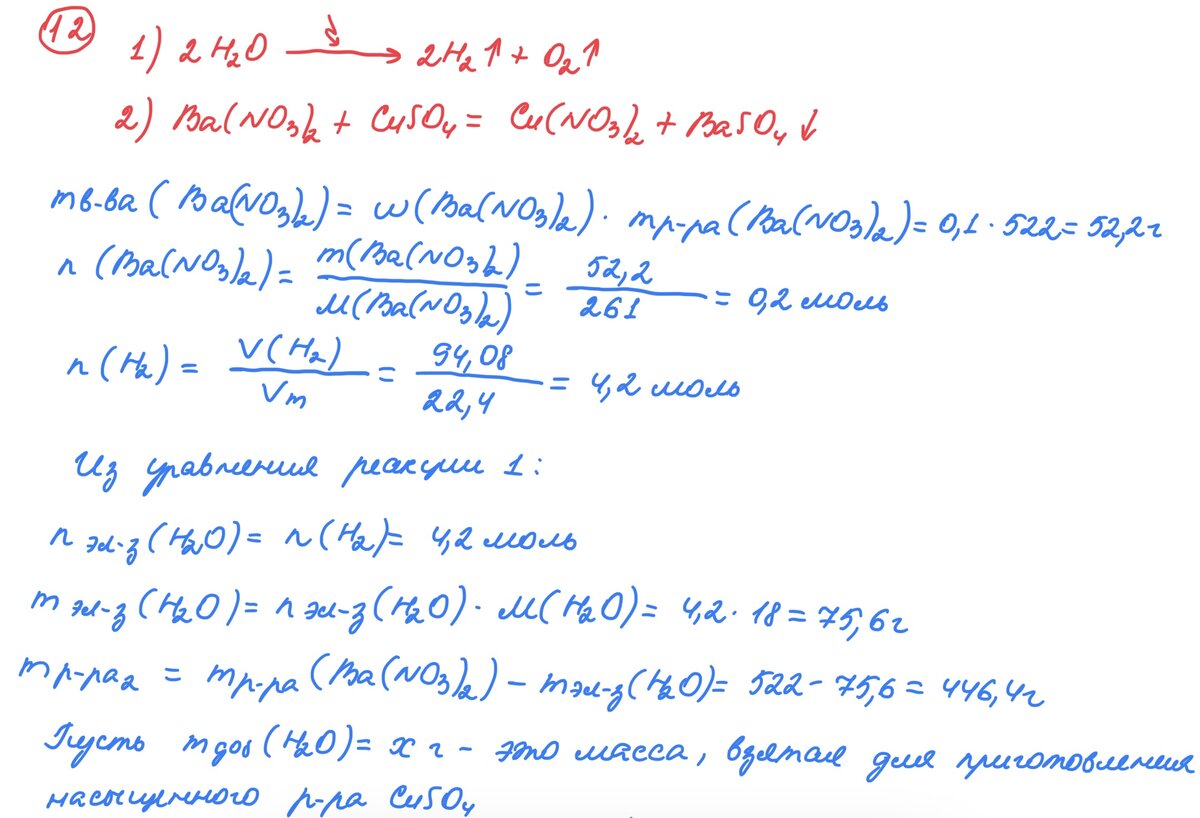 12
1) 2H₂O → 2H₂↑ + O₂↑
2) Ba(NO₃)₂ + CuSO₄ = Cu(NO₃)₂ + BaSO₄↓
mв-ва(Ba(NO₃)₂) = ω(Ba(NO₃)₂) · mр-ра(Ba(NO₃)₂) = 0,1 · 522 = 52,2г
n(Ba(NO₃)₂) = m(Ba(NO₃)₂) / M(Ba(NO₃)₂) = 52,2 / 261 = 0,2 моль
n(H₂) = V(H₂) / Vm = 94,08 / 22,4 = 4,2 моль
Из уравнения реакции 1:
n эл-з(H₂O) = n(H₂) = 4,2 моль
m эл-з(H₂O) = n эл-з(H₂O) · M(H₂O) = 4,2 · 18 = 75,6г
m р-ра₂ = mр-ра(Ba(NO₃)₂) – mэл-з(H₂O) = 522 – 75,6 = 446,4г
Пусть m доб(H₂O) = x г – это масса, взятая для приготовления
насыщенного р-ра CuSO₄